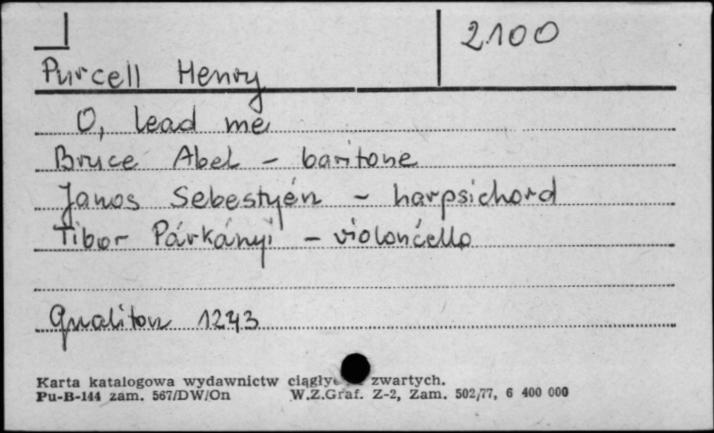 2100
Purcell Henry
O, lead me
Bryce Abel - baritone
Janos Sebestyén - harpsichord
Tibor Párkányi - violoncello
Qualiton 1243
Karta katalogowa wydawnictw zwartych.
Pu-B-144 zam. 567/DW/On W.Z.Graf. Z-2, Zam. 502/77, 6 400 000